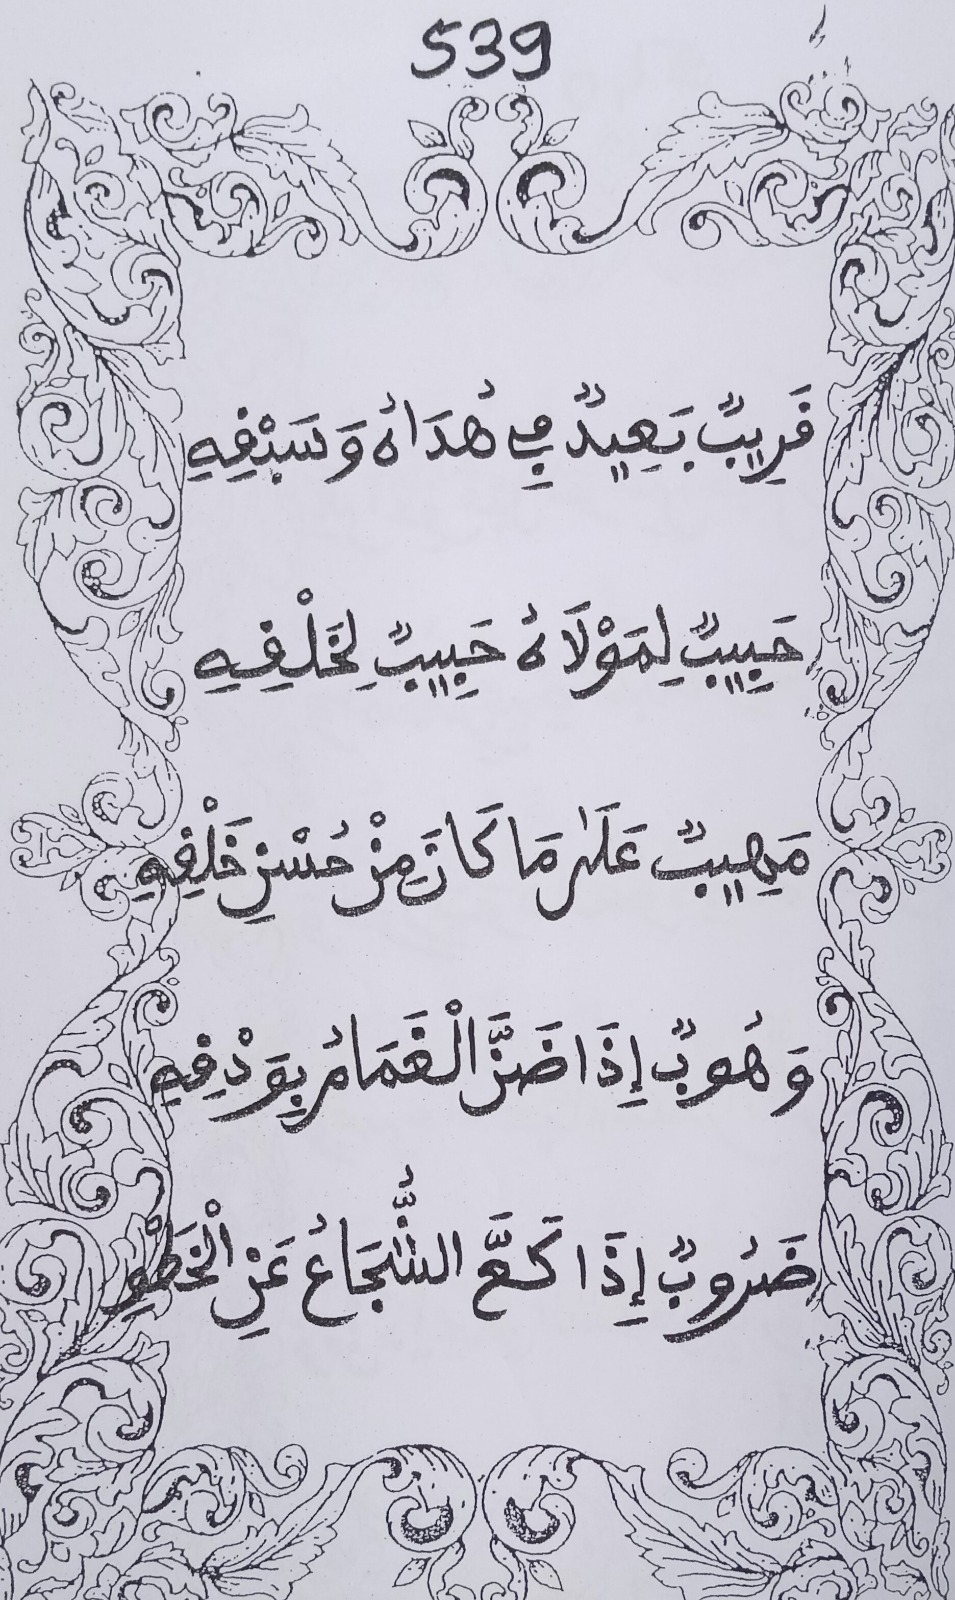 539
قَرِيبٌ بَعِيدٌ فِي هُدَاهُ وَسَبْقِهِ
حَبِيبٌ لِمَوْلَاهُ حَبِيبٌ لِخَلْقِهِ
مَهِيبٌ عَلَىٰ مَا كَانَ مِنْ حُسْنِ خَلْقِهِ
وَهُوبٌ إِذَا ضَنَّ الْغَمَامُ بِوَدْقِهِ
ضَرُوبٌ إِذَا كَعَّ الشُّجَاعُ عَنِ الْخَطْوِ